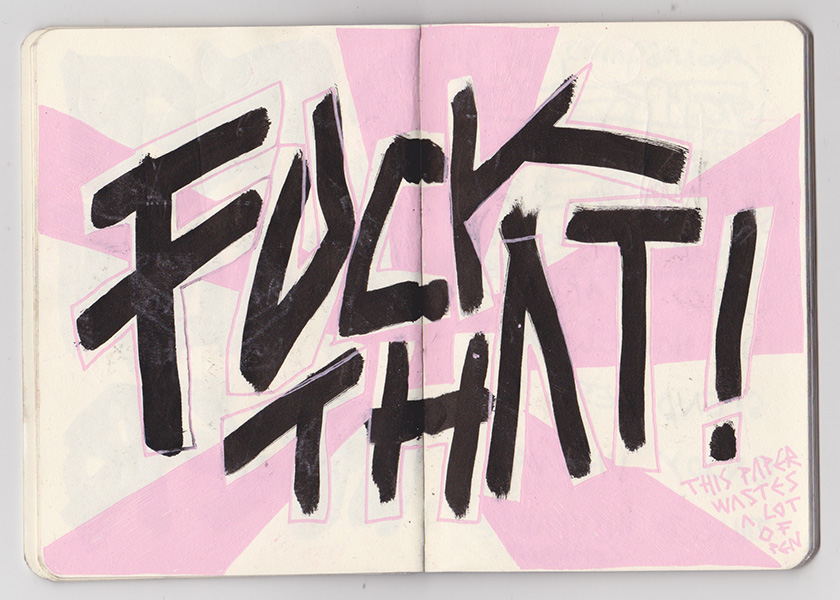 FUCK
THAT!
THIS PAPER
WASTES
A LOT
OF
PEN